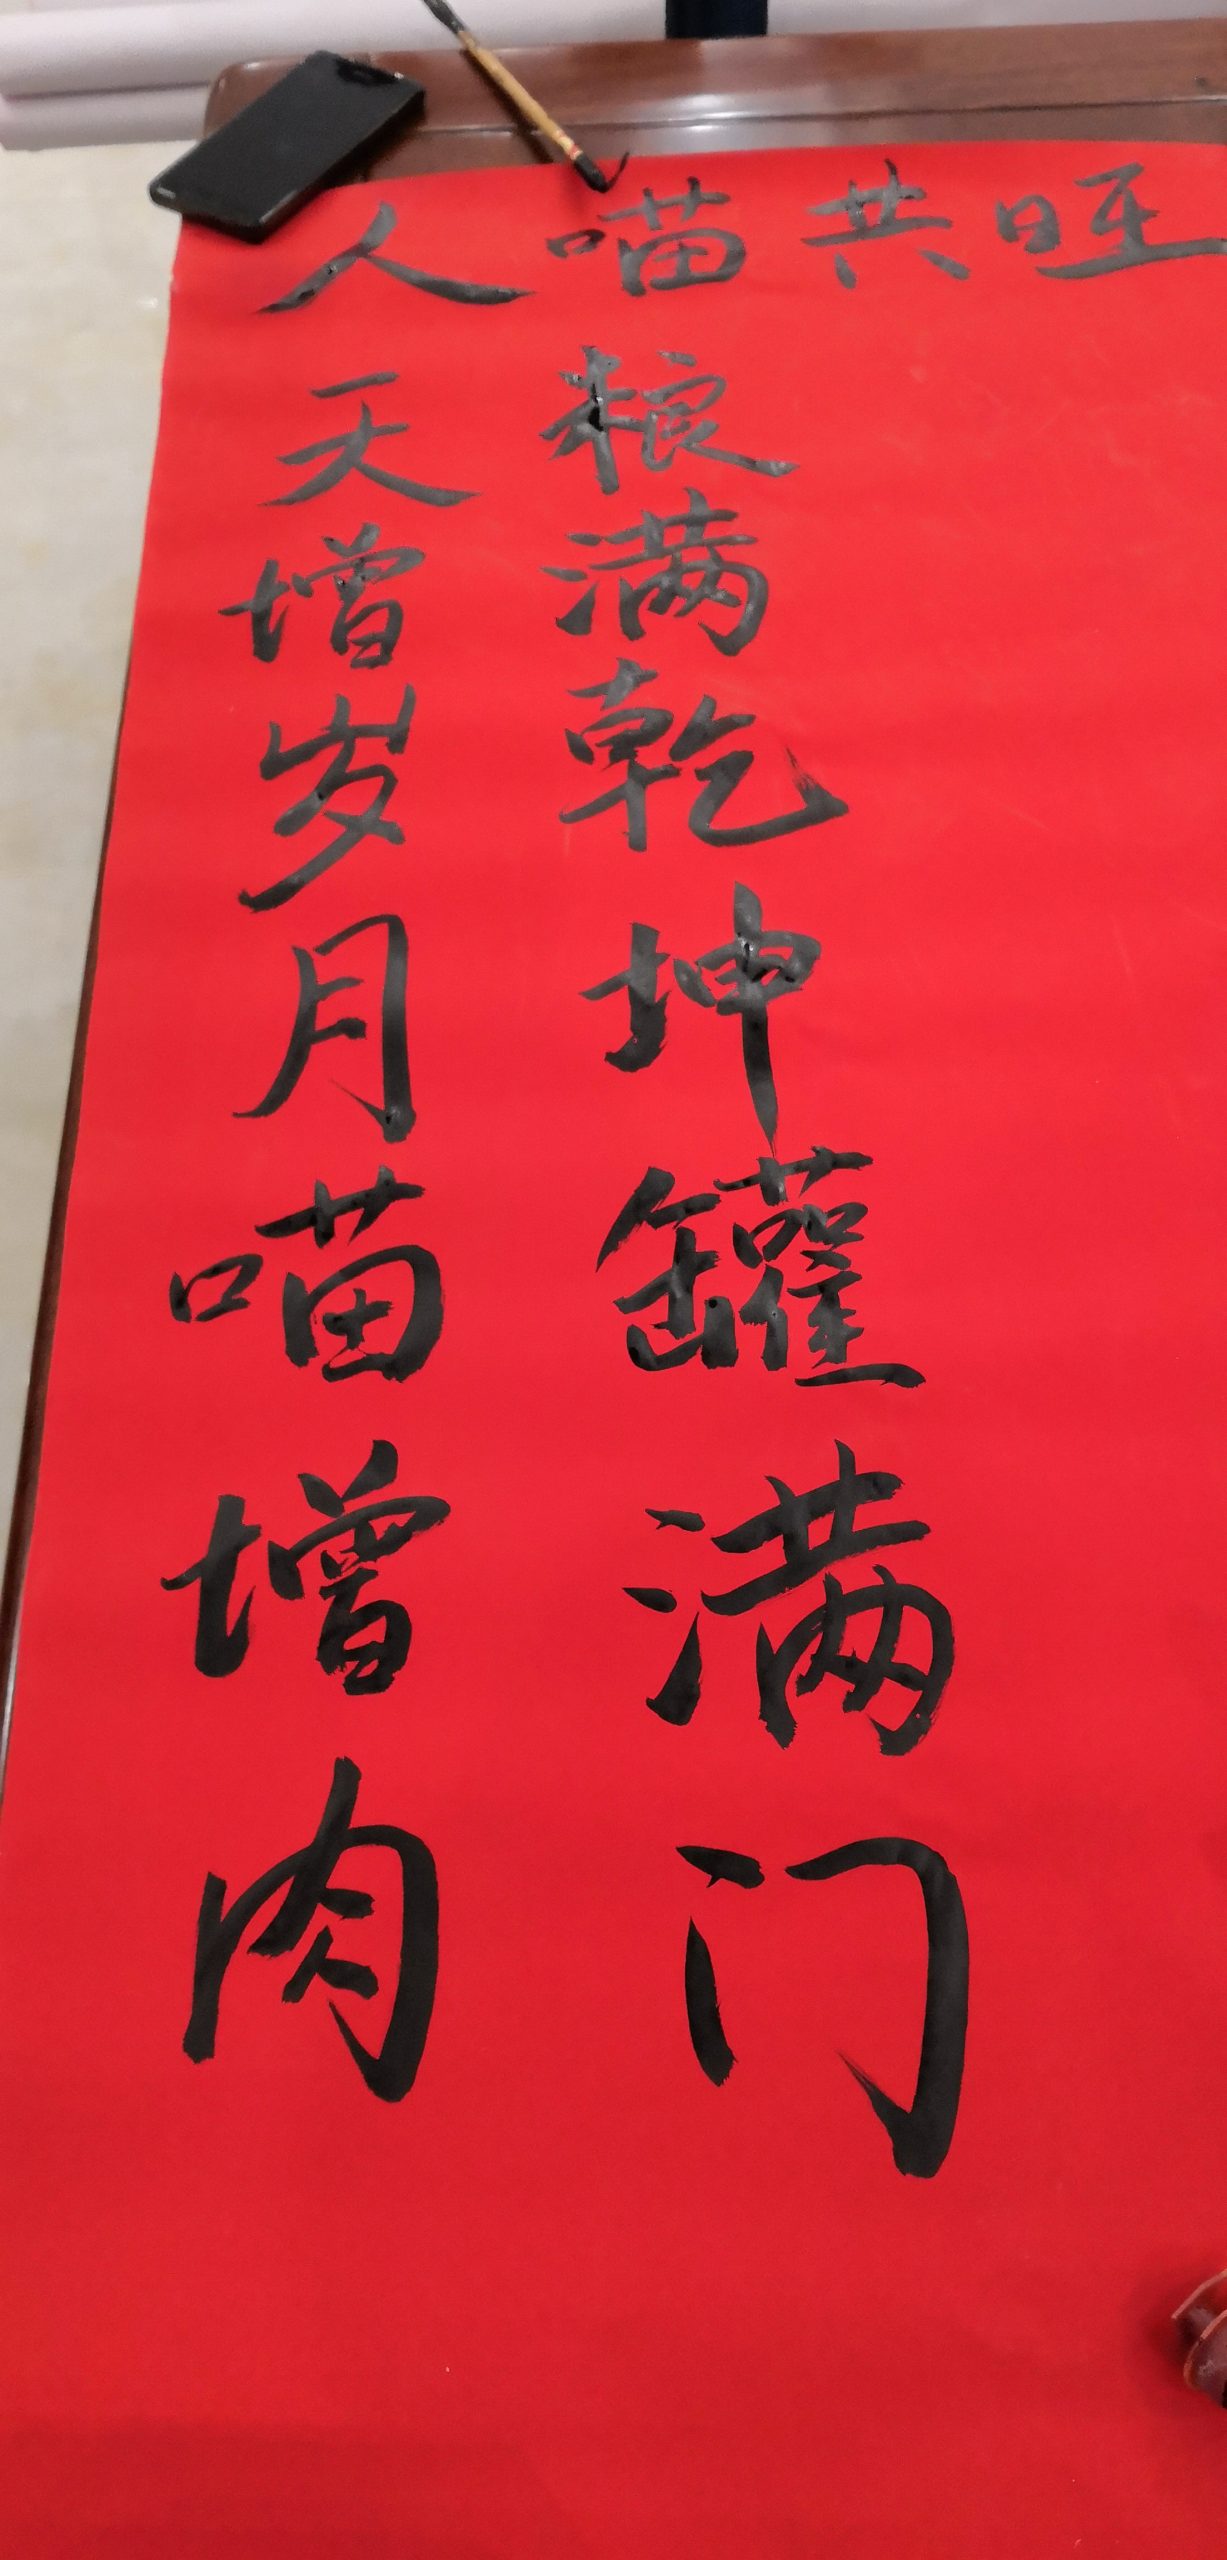 人喵共旺
天增岁月喵增肉
粮满乾坤罐满门